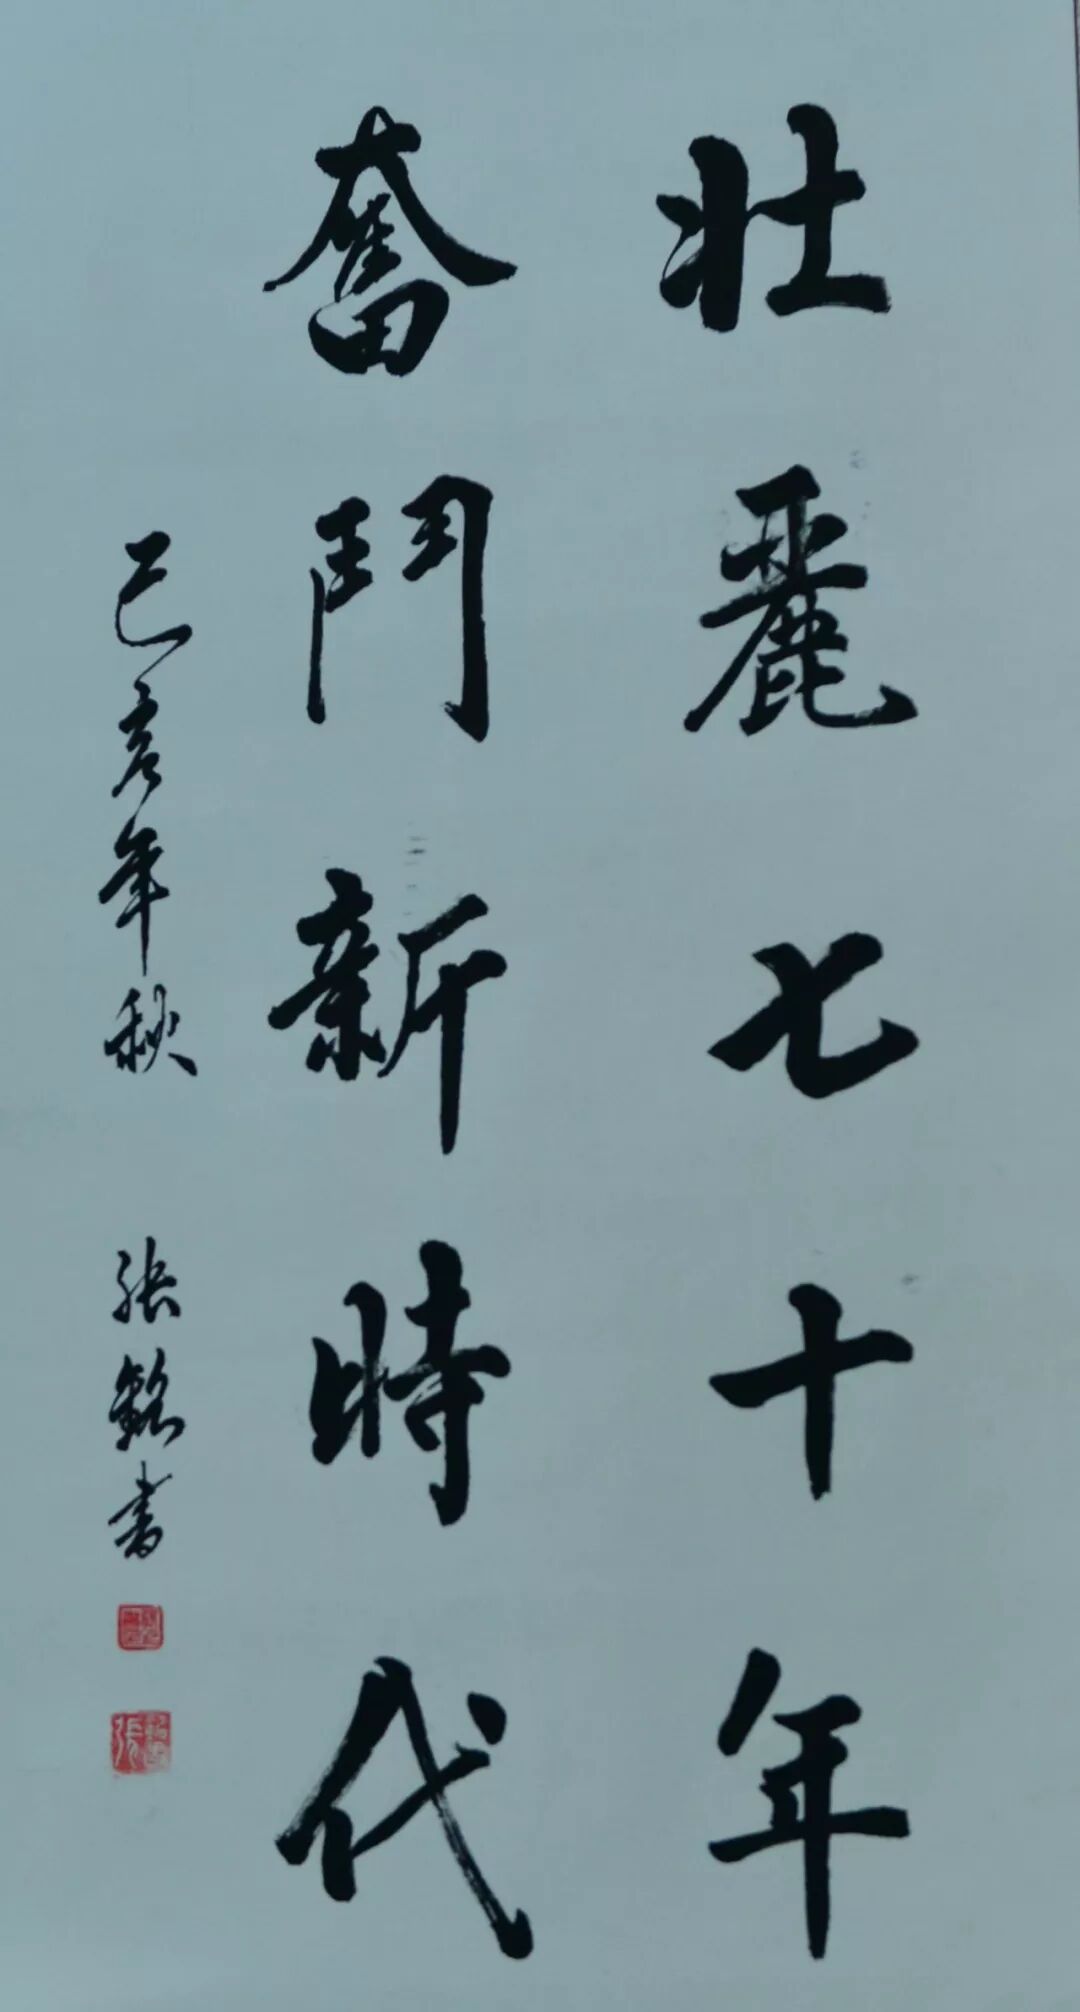 壮麗七十年
奮鬥新時代
己亥年秋
張銘書